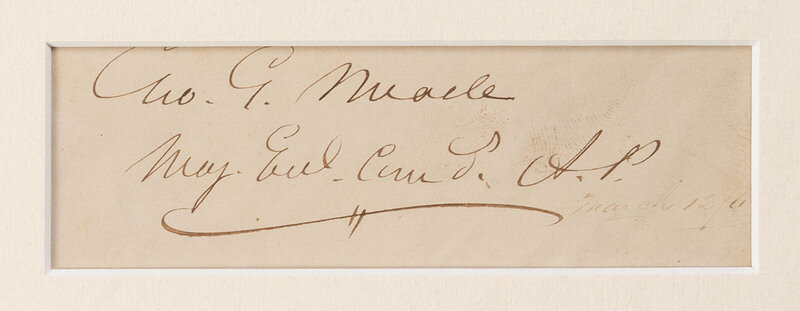 Geo. G. Meade
Maj. Genl. Comd. A.P.
March